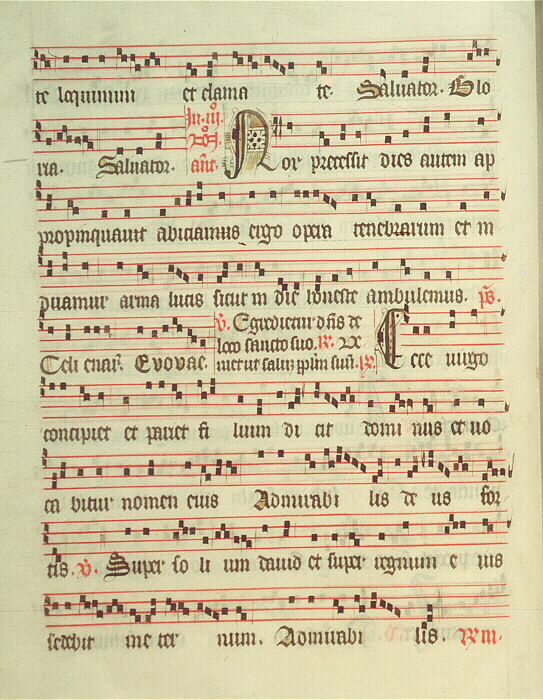 te loquimini et clama te. Saluator. Glo
ria. Saluator. añt. Nox precessit dies autem ap
propinquauit abiciamus ergo opera tenebrarum et in
duamur arma lucis sicut in die honeste ambulemus. ps.
Celi enar̃. Evovae. ℣. Egredietur dñs de
loco sancto suo. ℟.
Ecce uirgo
concipiet et pariet fi lium di cit domi nus et uo
ca bitur nomen eius Admirabi lis de us for
tis. ℣. Super so li um dauid et super regnum e ius
sedebit in e ter num. Admirabi lis.